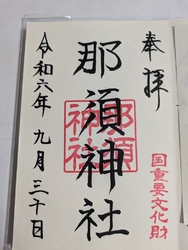 奉拝
国重要文化財
那須神社
那須
神社
令和六年 九月三十日